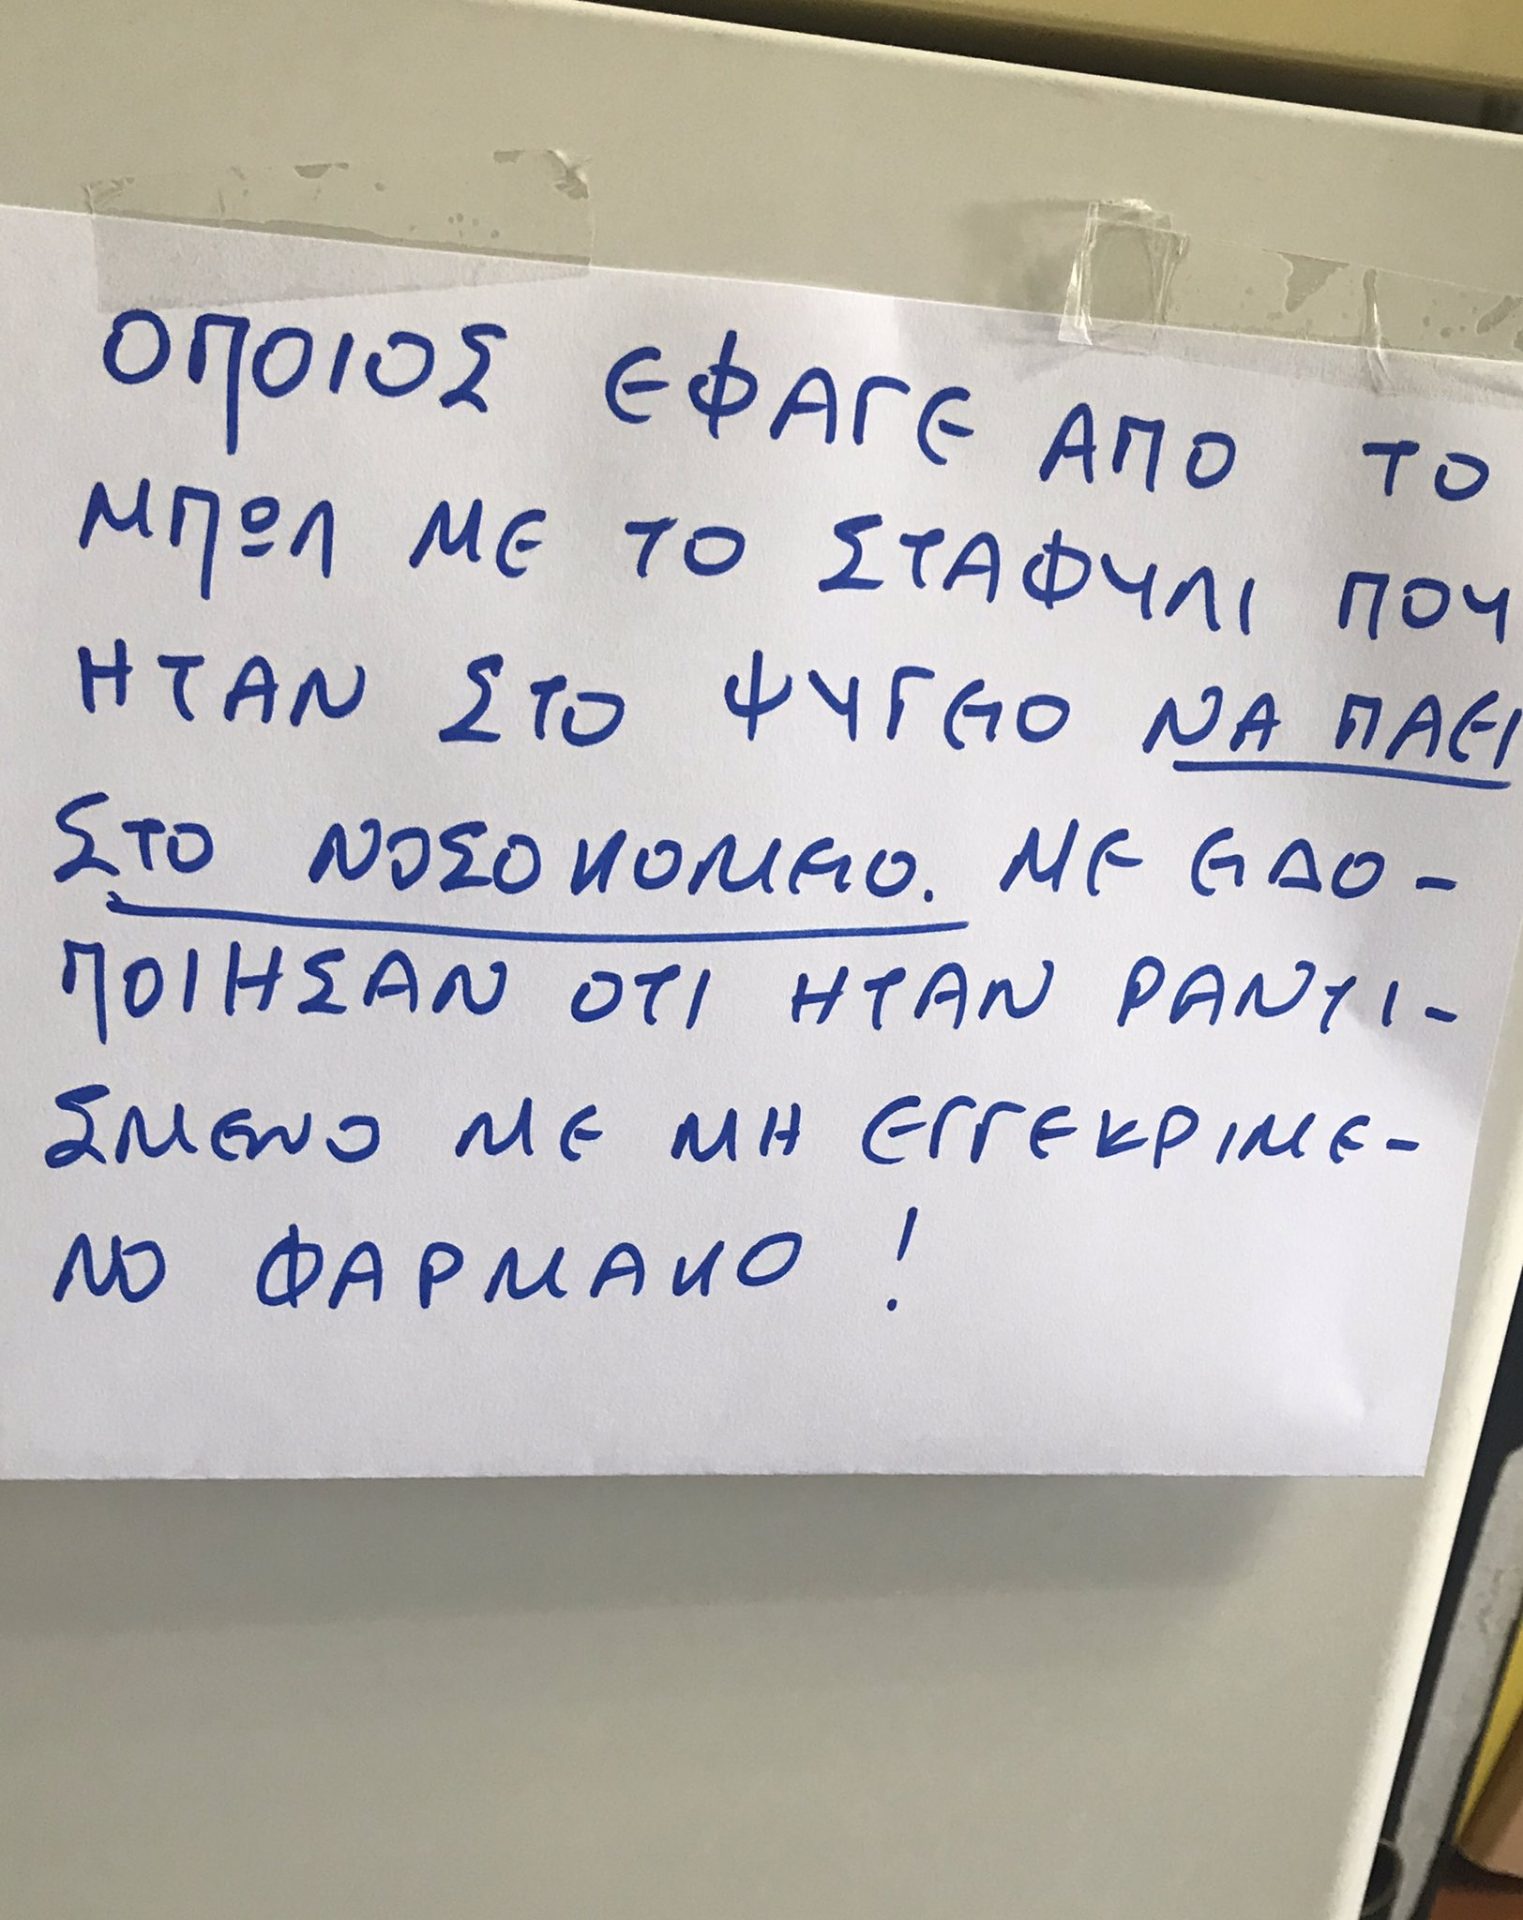 ΟΠΟΙΟΣ ΕΦΑΓΕ ΑΠΟ ΤΟ
ΜΠΩΛ ΜΕ ΤΟ ΣΤΑΦΥΛΙ ΠΟΥ
ΗΤΑΝ ΣΤΟ ΨΥΓΕΙΟ ΝΑ ΠΑΕΙ
ΣΤΟ ΝΟΣΟΚΟΜΕΙΟ. ΜΕ ΕΙΔΟ-
ΠΟΙΗΣΑΝ ΟΤΙ ΗΤΑΝ ΡΑΝΤΙ-
ΣΜΕΝΟ ΜΕ ΜΗ ΕΓΓΕΚΡΙΜΕ-
ΝΟ ΦΑΡΜΑΚΟ !